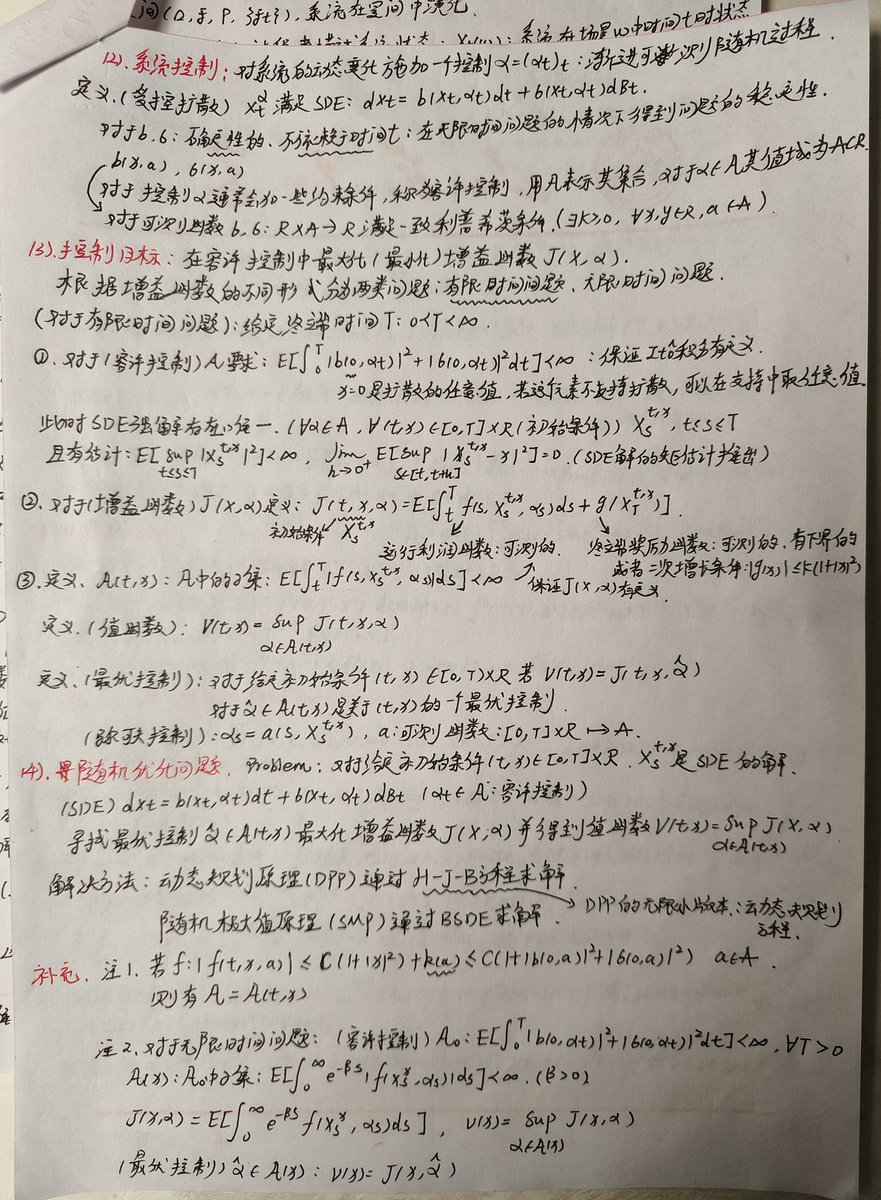 间(Ω, F, P, {Ft}), 系统在空间中演化.
系统状态. Xt(w): 系统在场景w中时间t时状态
(2). 系统控制: 对系统的动态变化施加一个控制α=(αt)t: 渐进可测随机过程.
定义. (受控扩散) Xt^α 满足SDE: dXt = b(Xt, αt)dt + σ(Xt, αt)dBt.
对于b, σ: 确定性的、不依赖于时间t: 在无限时间问题的情况下得到问题的稳定性.
b(x,a), σ(x,a)
对于控制α通常会加一些约束条件, 称为容许控制, 用A表示其集合, 对于α∈A其值域为A⊂R.
对于可测函数b, σ: R×A→R 满足一致利普希茨条件. (∃k≥0, ∀x,y∈R, a∈A).
(3). 控制目标: 在容许控制中最大化(最小化)增益函数J(X, α).
根据增益函数的不同形式分为两类问题: 有限时间问题、无限时间问题.
(对于有限时间问题): 给定终端时间T: 0<T<∞.
①. 对于(容许控制)A要求: E[∫_0^T |b(0, αt)|²+|σ(0, αt)|²dt]<∞ : 保证Itô积分有定义.
x=0是扩散的任意值, 若这个元素不支持扩散, 可以在支持中取任意值.
此时SDE强解存在唯一. (∀α∈A, ∀(t,x)∈[0,T]×R(初始条件)) Xs^{t,x}, t≤s≤T
且有估计: E[sup_{t≤s≤T} |Xs^{t,x}|²]<∞, lim_{h→0+} E[sup_{s∈[t,t+h]} |Xs^{t,x}-x|²]=0. (SDE解的矩估计推出)
②. 对于(增益函数)J(X,α)定义: J(t,x,α)=E[∫_t^T f(s, Xs^{t,x}, αs)ds + g(X_T^{t,x})].
初始条件 Xs^{t,x}
运行利润函数: 可测的. 终端奖励函数: 可测的. 有下界的
或者二次增长条件: |g(x)|≤k(1+|x|²)
③. 定义. A(t,x): A中的子集: E[∫_t^T |f(s, Xs^{t,x}, αs)|ds]<∞ 保证J(X,α)有定义.
定义. (值函数): V(t,x) = sup_{α∈A(t,x)} J(t,x,α)
定义. (最优控制): 对于给定初始条件(t,x)∈[0,T)×R 若V(t,x)=J(t,x,α̂)
对于α̂∈A(t,x)是关于(t,x)的一个最优控制.
(马尔可夫控制): αs=a(s, Xs^{t,x}), a: 可测函数: [0,T]×R ↦ A.
(4). 随机优化问题. Problem: 对于给定初始条件(t,x)∈[0,T]×R. Xs^{t,x}是SDE的解.
(SDE) dXt = b(Xt, αt)dt + σ(Xt, αt)dBt (αt∈A: 容许控制)
寻找最优控制α̂∈A(t,x)最大化增益函数J(X,α)并得到值函数V(t,x)=sup_{α∈A(t,x)} J(X,α)
解决方法: 动态规划原理(DPP)通过H-J-B方程求解.
随机极大值原理(SMP)通过BSDE求解. DPP的无限小版本: 动态规划
方程.
补充. 注1. 若f: |f(t,x,a)| ≤ C(1+|x|²)+k(a) ≤ C(1+|b(0,a)|²+|σ(0,a)|²) a∈A.
则有A=A(t,x)
注2. 对于无限时间问题: (容许控制)A₀: E[∫_0^T |b(0,αt)|²+|σ(0,αt)|²dt]<∞, ∀T>0
A(x): A₀中子集: E[∫_0^∞ e^{-βs}|f(Xs^x, αs)|ds]<∞. (β>0)
J(x,α) = E[∫_0^∞ e^{-βs} f(Xs^x, αs)ds], V(x)= sup_{α∈A(x)} J(x,α)
(最优控制) α̂∈A(x): V(x)=J(x,α̂)